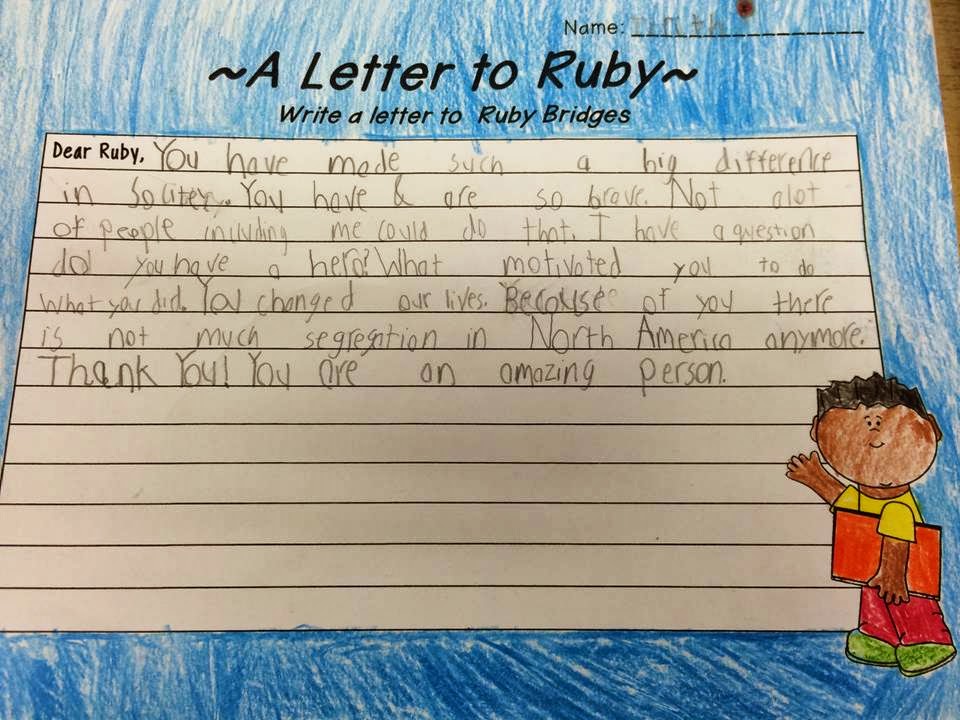 Name:
~A Letter to Ruby~
Write a letter to Ruby Bridges
Dear Ruby, You have made such a big difference
in soulitey. You have & are so brave. Not alot
of people including me could do that. I have a question
do you have a hero? What motivated you to do
what you did. You changed our lives. Because of you there
is not much segregation in North America anymore.
Thank You! You are an amazing person.